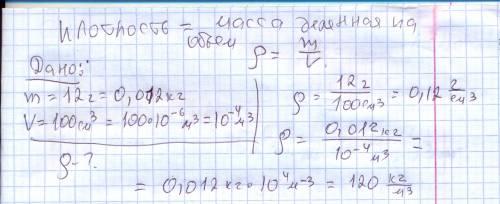 плотность = масса деленная на
объем
ρ = m/V.
Дано:
m = 12г = 0,012кг
V = 100см³ = 100•10⁻⁶м³ = 10⁻⁴м³
ρ - ?
ρ = 12г/100см³ = 0,12 г/см³
ρ = 0,012кг/10⁻⁴м³ =
= 0,012кг•10⁴м⁻³ = 120 кг/м³